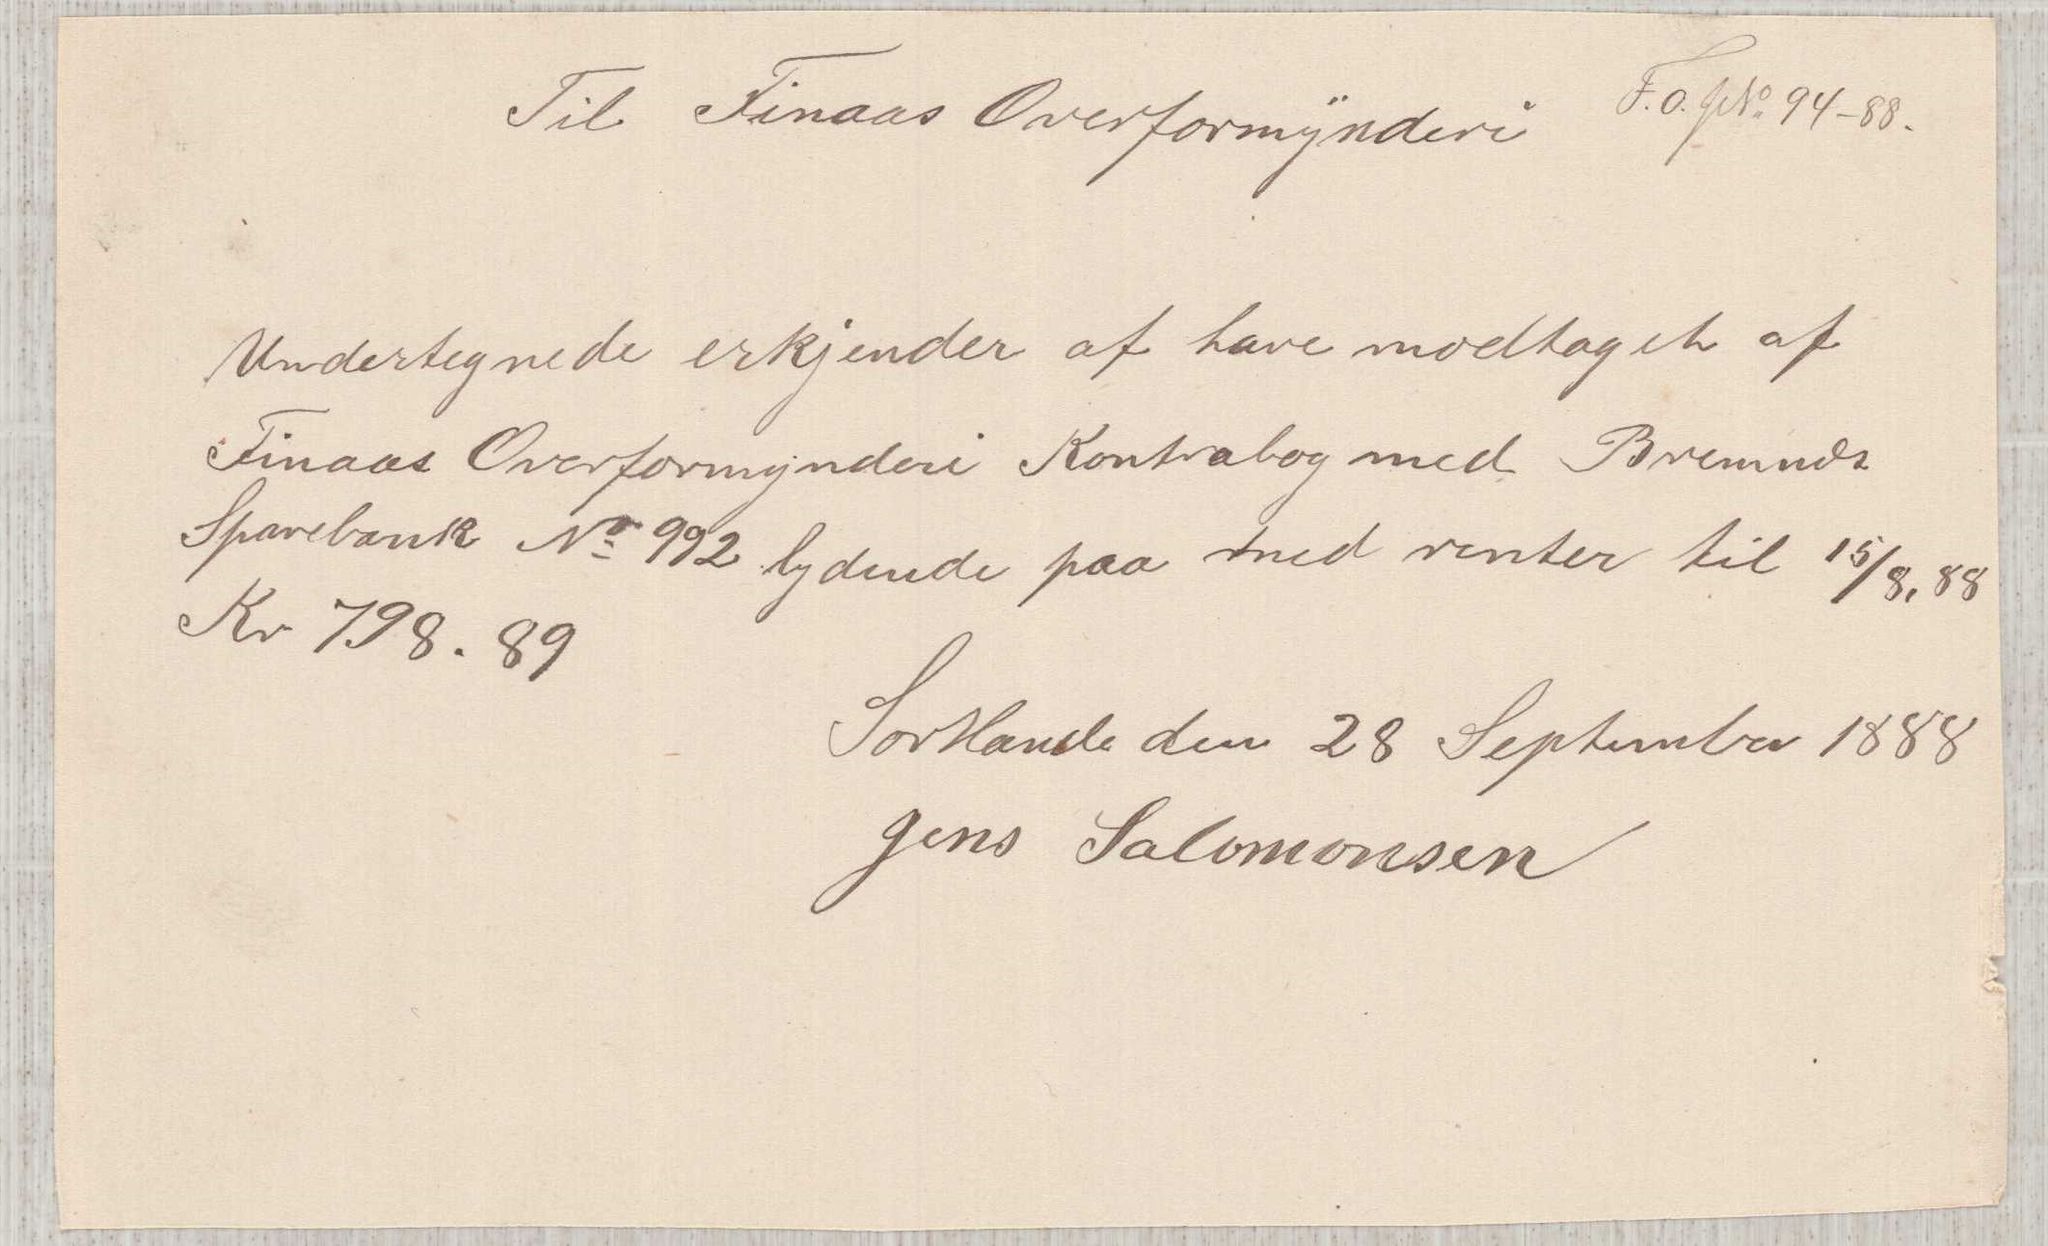 Til Finaas Overformÿnderi
F. O. JNo. 94-88.
Undertegnede erkjender af have modtaget af
Finaas Overformynderi Kontrabog med Bremnds
Sparebank No 992 lydende paa med renter til 15/8.88
Kr 798.89
Sortlande den 28 September 1888
Jens Salomonsen